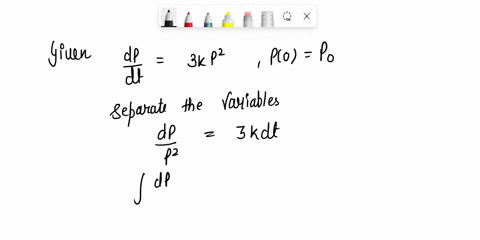 Given dP/dt = 3kP², P(0) = P₀
Separate the variables
dP/P² = 3kdt
∫ dP